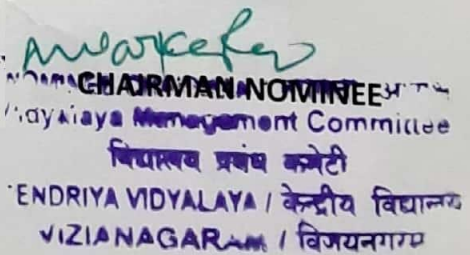 CHAIRMAN NOMINEE
Management Committee
विद्यालय प्रबंध कमेटी
ENDRIYA VIDYALAYA / केन्द्रीय विद्यालय
VIZIANAGARAM / विजयनगरम